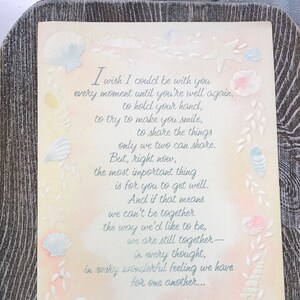 I wish I could be with you
every moment until you're well again,
to hold your hand,
to try to make you smile,
to share the things
only we two can share.
But, right now,
the most important thing
is for you to get well.
And if that means
we can't be together
the way we'd like to be,
we are still together—
in every thought,
in every wonderful feeling we have
for one another...